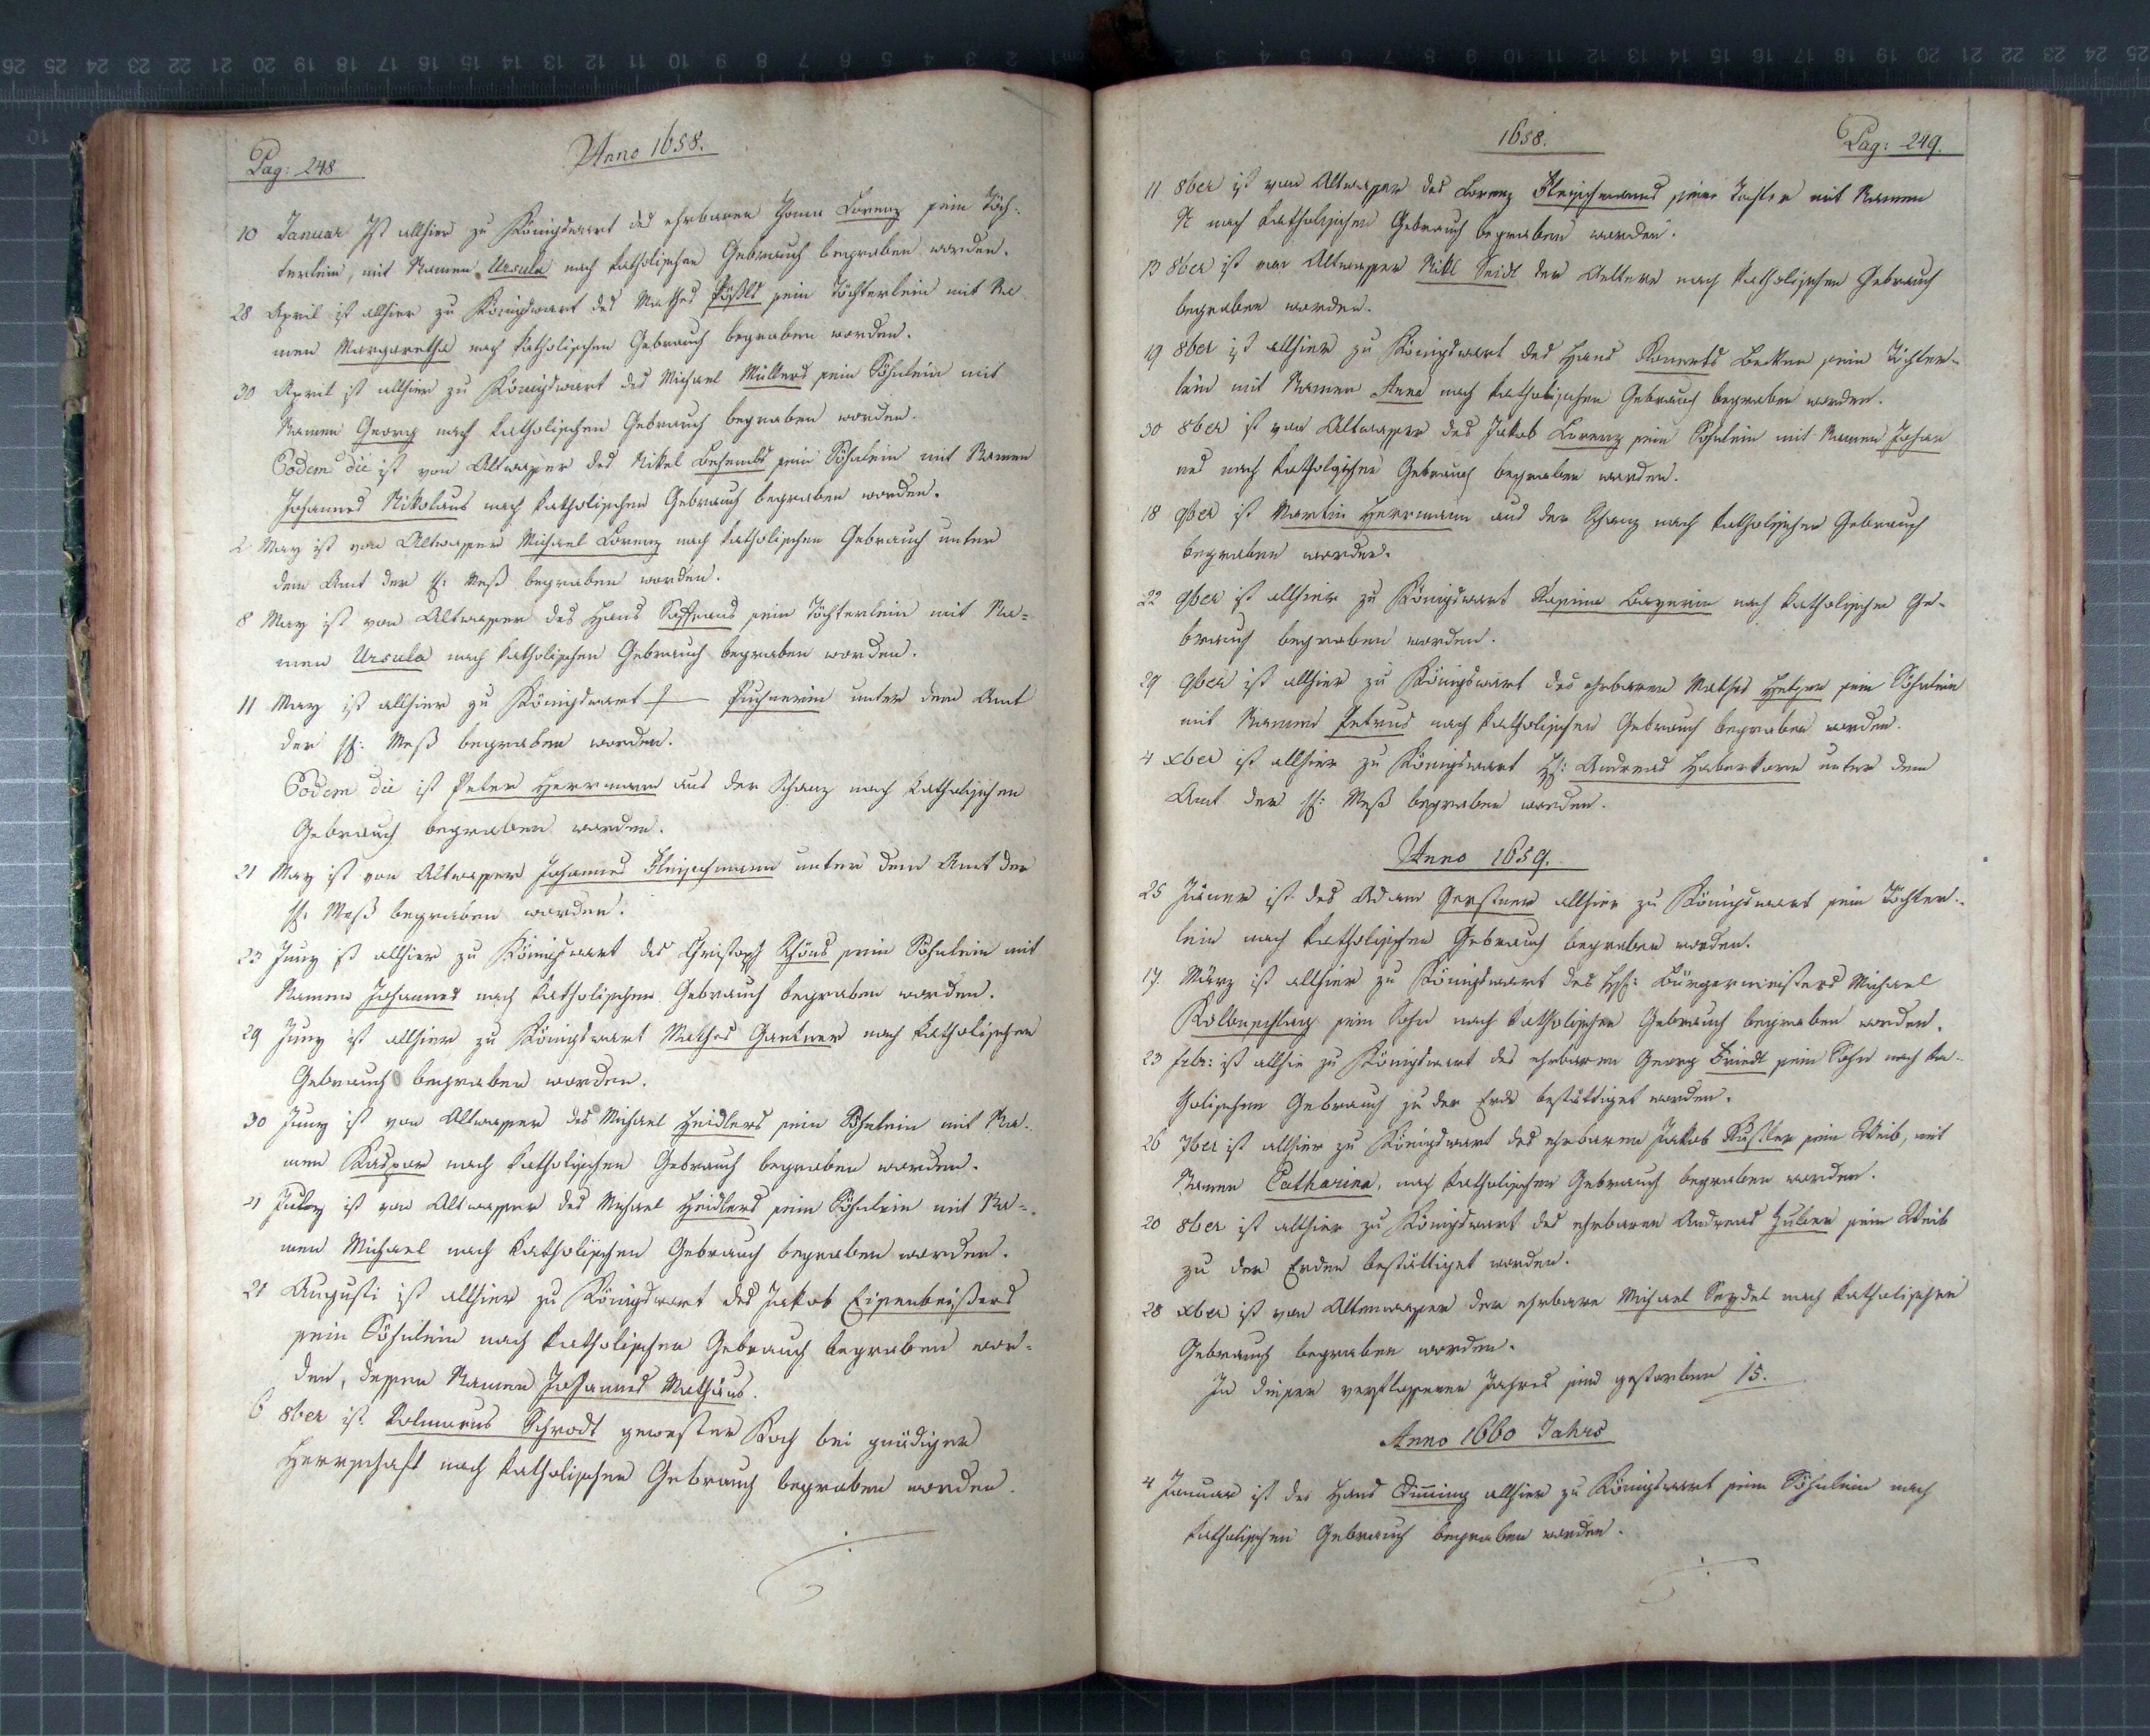 Pag: 248
Anno 1658.
10 Januar Ist allhier zu Königswart des ehrbaren Lorenz sein Töch-
terlein, mit Namen Ursula nach katholischen Gebrauch begraben worden.
28 April ist allhier zu Königswart des Mathes sein Töchterlein mit Na
men Margaretha nach katholischen Gebrauch begraben worden.
30 April ist allhier zu Königswart des Michael Müllers sein Söhnlein mit
Namen Georg nach katholischen Gebrauch begraben worden.
Eodem die ist von Altwasser des Nikel sein Söhnlein mit Namen
Johannes Nikolaus nach katholischen Gebrauch begraben worden.
2 May ist von Altwasser Michael Lorenz nach katholischen Gebrauch unter
dem Amt der H: Meß begraben worden.
8 May ist von Altwasser des Hans sein Töchterlein mit Na=
men Ursula nach katholischen Gebrauch begraben worden.
11 May ist allhier zu Königswart Puchnerin unter dem Amt
der H: Meß begraben worden.
Eodem die ist Peter Herrmann aus der Schanz nach katholischen
Gebrauch begraben worden.
21 May ist von Altwasser Johannes Fleischmann unter dem Amt der
H: Meß begraben worden.
23 Juny ist allhier zu Königswart des Christoph Schöns sein Söhnlein mit
Namen Johannes nach katholischen Gebrauch begraben worden.
29 Juny ist allhier zu Königswart Mathes Gartner nach katholischen
Gebrauch begraben worden.
30 Juny ist von Altwasser des Michael Heidlers sein Söhnlein mit Na-
men Kaspar nach katholischen Gebrauch begraben worden.
July ist von Altwasser des Michael Heidlers sein Söhnlein mit Na-
men Michael nach katholischen Gebrauch begraben worden.
21 Augusti ist allhier zu Königswart des Jakob Eisenbeißers
sein Söhnlein nach katholischen Gebrauch begraben wor-
den, dessen Namen Johannes Mathäus.
6 8ber ist Schrodt gewester Koch bei gnädiger
Herrschaft nach katholischen Gebrauch begraben worden.
1658.
Pag: 249.
11 8ber ist von Altwasser des Lorenz Fleischmanns seine Tochter mit Namen
N nach katholischen Gebrauch begraben worden.
13 8ber ist von Altwasser Nikl Seidl der Aeltere nach katholischen Gebrauch
begraben worden.
19 8ber ist allhier zu Königswart des Hans Becken sein Töchter-
lein mit Namen Anna nach katholischen Gebrauch begraben worden.
30 8ber ist von Altwasser des Jakob Lorenz sein Söhnlein mit Namen Johan
nes nach katholischen Gebrauch begraben worden.
18 9ber ist Martin Herrmann aus der Schanz nach katholischen Gebrauch
begraben worden.
22 9ber ist allhier zu Königswart Bayerin nach katholischen Ge-
brauch begraben worden.
29 9ber ist allhier zu Königswart des ehrbaren Mathes sein Söhnlein
mit Namens Petrus nach katholischen Gebrauch begraben worden.
4 xber ist allhier zu Königswart H: Andreas Haberkorn unter dem
Amt der H: Meß begraben worden.
Anno 1659.
25 Jäner ist des Adam Gerstner allhier zu Königswart sein Töchter-
lein nach katholischen Gebrauch begraben worden.
17. März ist allhier zu Königswart des H: Bürgermeisters Michael
Kolbenschlag sein Sohn nach katholischen Gebrauch begraben worden.
23 Febr: ist allhie zu Königswart des ehrbaren Georg Friedl sein Sohn nach ka-
tholischen Gebrauch zu der Erde bestättiget worden.
26 7ber ist allhier zu Königswart des ehrbaren Jakob sein Weib, mit
Namen Catharina, nach katholischen Gebrauch begraben worden.
20 8ber ist allhier zu Königswart des ehrbaren Andreas Huber sein Weib
zu der Erden bestättiget worden.
28 xber ist von Altenwasser der ehrbare Michael Seydel nach katholischen
Gebrauch begraben worden.
In diesem verflossenen Jahres sind gestorben 15.
Anno 1660 Jahrs
4 Januar ist des Hans allhier zu Königswart sein Söhnlein nach
katholischen Gebrauch begraben worden.